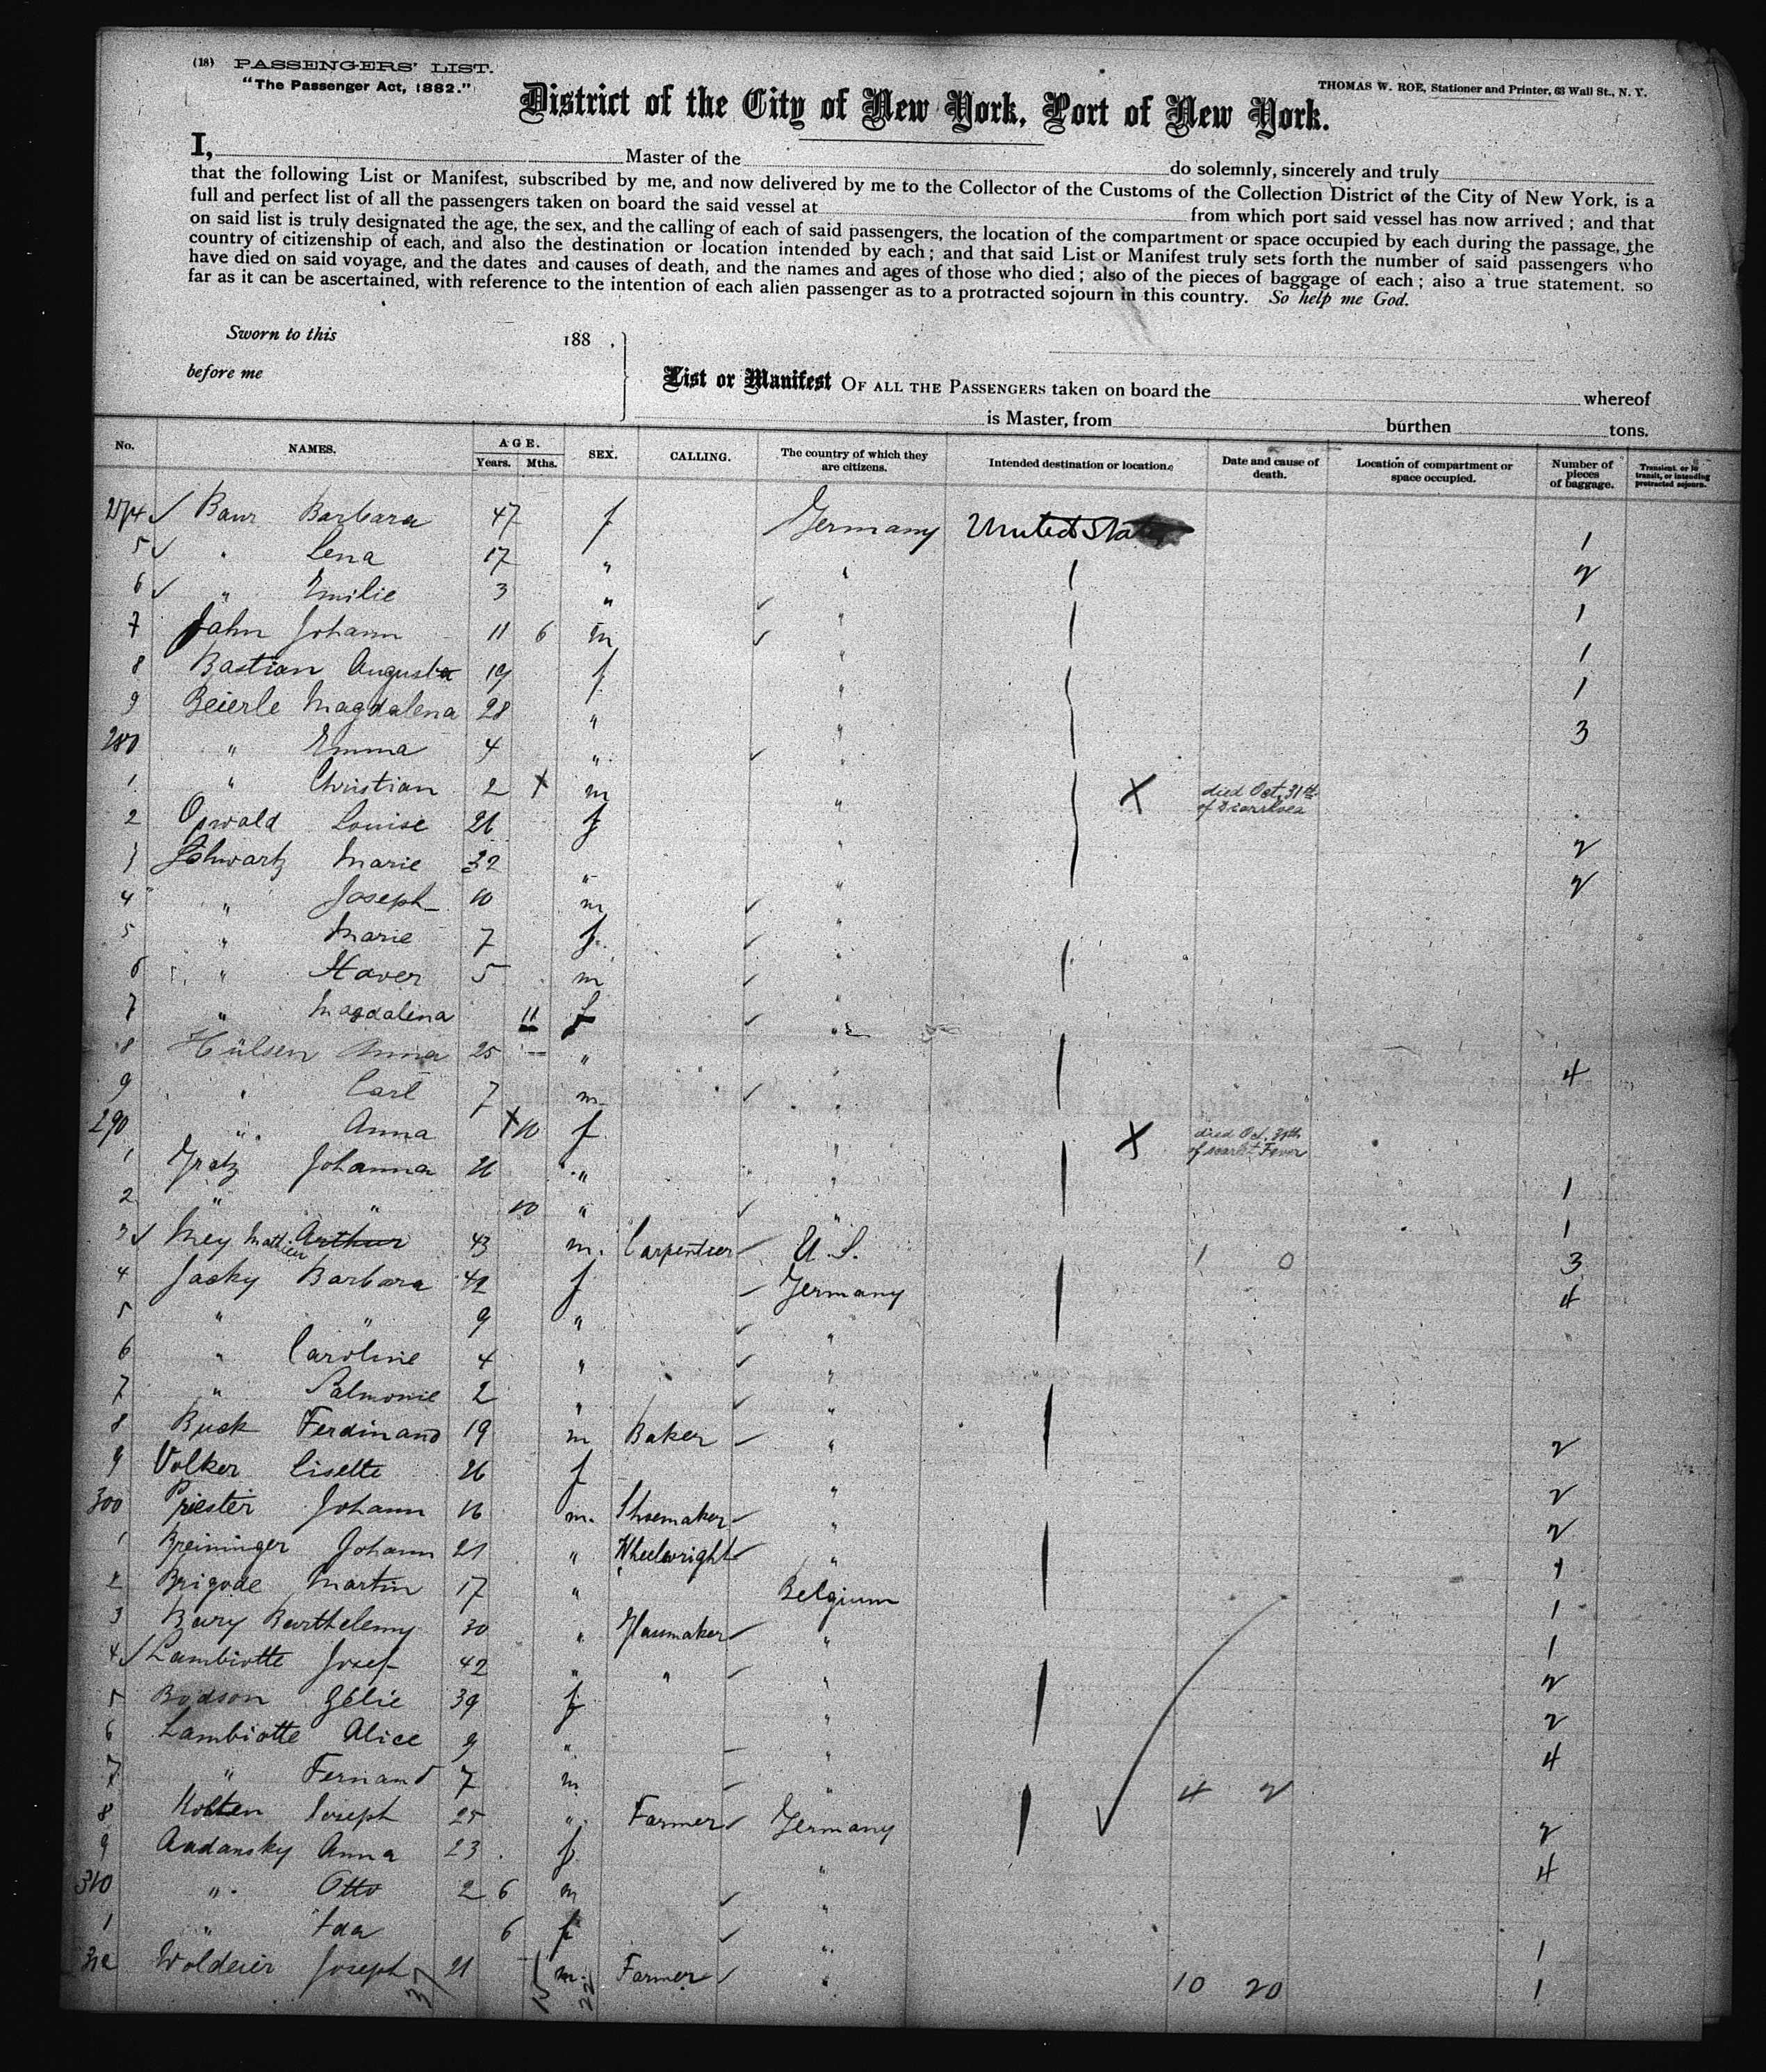 (18) PASSENGERS' LIST.
"The Passenger Act, 1882."
THOMAS W. ROE, Stationer and Printer, 63 Wall St., N. Y.
District of the City of New York, Port of New York.
I, Master of the do solemnly, sincerely and truly
that the following List or Manifest, subscribed by me, and now delivered by me to the Collector of the Customs of the Collection District of the City of New York, is a
full and perfect list of all the passengers taken on board the said vessel at from which port said vessel has now arrived; and that
on said list is truly designated the age, the sex, and the calling of each of said passengers, the location of the compartment or space occupied by each during the passage, the
country of citizenship of each, and also the destination or location intended by each; and that said List or Manifest truly sets forth the number of said passengers who
have died on said voyage, and the dates and causes of death, and the names and ages of those who died; also of the pieces of baggage of each; also a true statement, so
far as it can be ascertained, with reference to the intention of each alien passenger as to a protracted sojourn in this country. So help me God.
Sworn to this 188 .
before me
List or Manifest OF ALL THE PASSENGERS taken on board the whereof
is Master, from burthen tons.
No. NAMES. AGE. Years. Mths. SEX. CALLING. The country of which they are citizens. Intended destination or location. Date and cause of death. Location of compartment or space occupied. Number of pieces of baggage. Transient, or in transit, or intending protracted sojourn.
274 ✓ Baur Barbara 47 f Germany United States 1
5 ✓ " Lena 17 " " 2
6 ✓ " Emilie 3 " ✓ " 1
7 Jahn Johann 11 6 m ✓ " 1
8 Bastian Augusta 19 f " 1
9 Beierle Magdalena 28 " " 3
280 " Emma 4 " ✓ "
1 " Christian 2 X m " X died Oct. 31th of Diarrhoea
2 Oswald Louise 26 f " 2
3 Schwartz Marie 32 " " 2
4 " Joseph 10 m ✓ "
5 " Marie 7 f ✓ "
6 " Xaver 5 m ✓ "
7 " Magdalena 11 f ✓ "
8 Hülsen Anna 25 " " 4
9 " Carl 7 m ✓ "
290 " Anna X 10 f " X died Oct. of scarlet Fever
1 Gratz Johanna 26 " " 1
2 " " 10 " ✓ " 1
3 ✓ Mey Mathieu Arthur 43 m. Carpenteer U. S. 1 0 3
4 Jacky Barbara 42 f Germany 4
5 " " 9 " ✓ "
6 " Caroline 4 " ✓ "
7 " Salmonie 2 " ✓ "
8 Buck Ferdinand 19 m Baker " 2
9 Volker Lisette 26 f " 2
300 Priester Johann 16 m. Shoemaker " 2
1 Breininger Johann 21 " Wheelwright " 1
2 Brigode Martin 17 " Belgium 1
3 Bary Barthelemy 30 " Glasmaker " 1
4 ✓ Lambiotte Josef 42 " " " 2
5 Bodson Zélie 39 f " 2
6 Lambiotte Alice 9 " " 4
7 " Fernand 7 m " 4 2
8 Holten Joseph 25 " Farmer ✓ Germany 2
9 Andansky Anna 23 f " 4
310 " Otto 2 6 m ✓ "
1 " Ida 6 f ✓ " 1
312 Woldeier Joseph 21 m. Farmer ✓ " 10 20 1
37 15 22